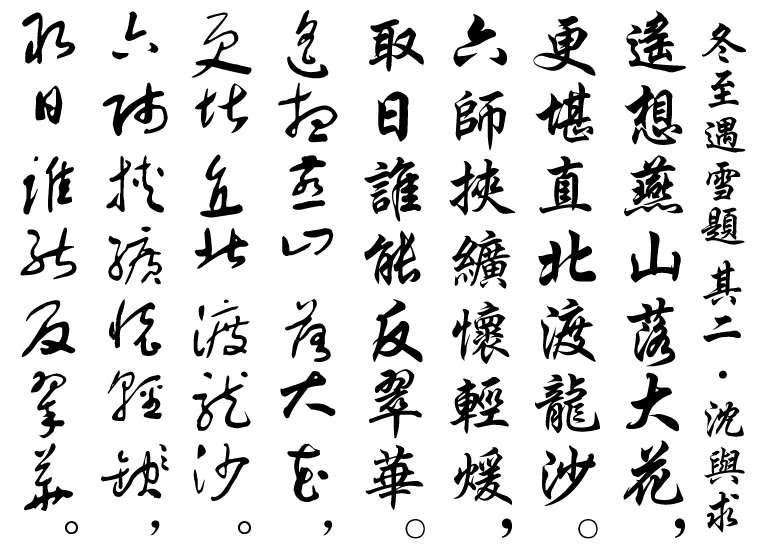 冬至遇雪題 其二・沈與求
遙想燕山落大花，
更堪直北渡龍沙。
六師挾纊懷輕煖，
取日誰能反翠華。
遙想燕山落大花，
更堪直北渡龍沙。
六師挾纊懷輕煖，
取日誰能反翠華。